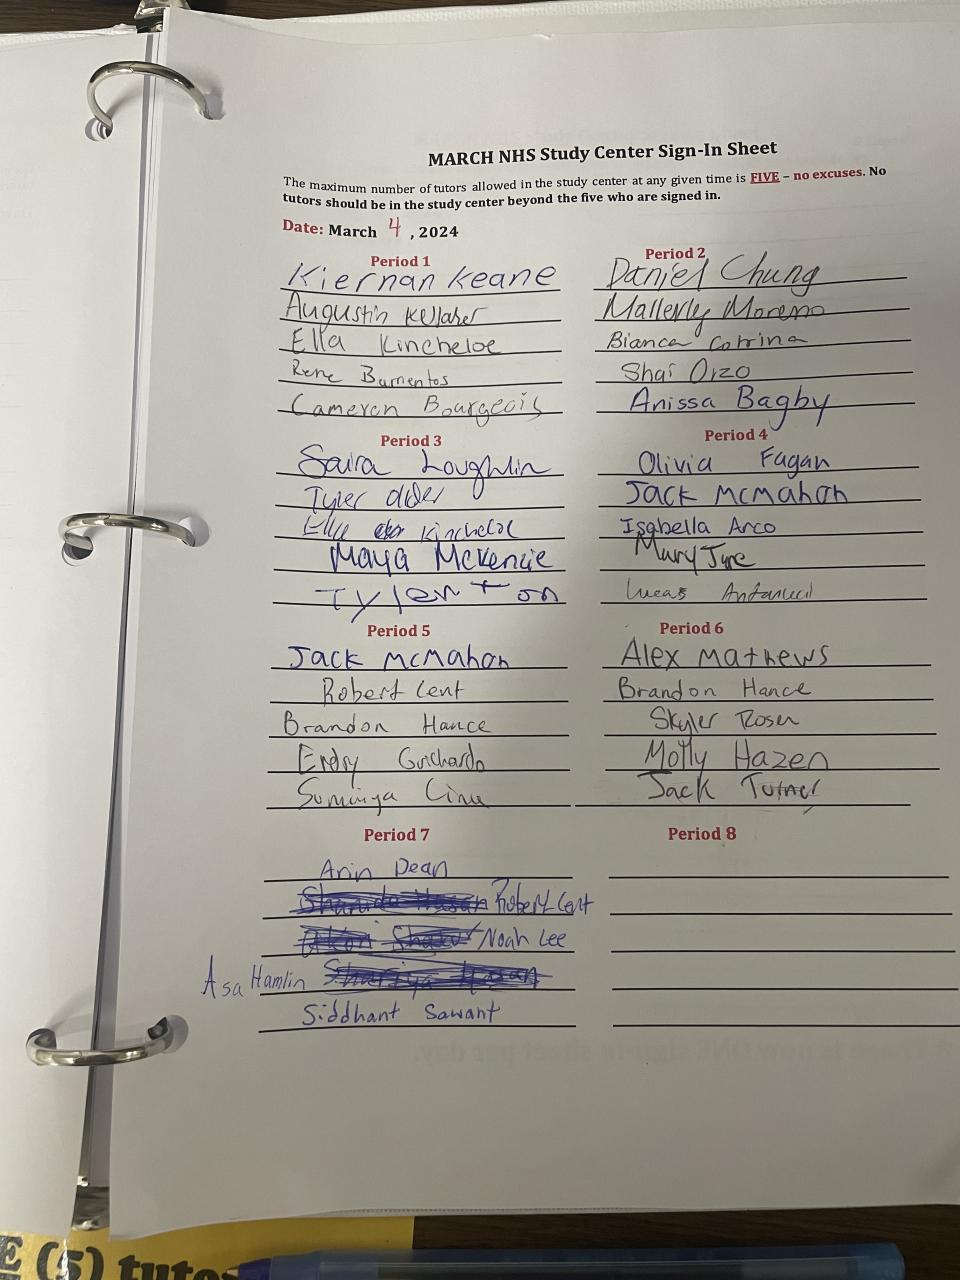 MARCH NHS Study Center Sign-In Sheet
The maximum number of tutors allowed in the study center at any given time is FIVE – no excuses. No
tutors should be in the study center beyond the five who are signed in.
Date: March 4, 2024
Period 1
Kiernan Keane
Augustin
Ella Kincheloe
Rene Barrientos
Cameron Bourgeois
Period 2
Daniel Chung
Mallerly Moreno
Bianca
Shai Orzo
Anissa Bagby
Period 3
Saira Loughlin
Tyler
Kincheloe
Maya McKenzie
Tyler Ton
Period 4
Olivia Fagan
Jack McMahon
Isabella Arco
Mary
Lucas
Period 5
Jack McMahon
Robert Cent
Brandon Hance
Guichardo
Sumaiya
Period 6
Alex Mathews
Brandon Hance
Skyler Rosen
Molly Hazen
Jack Turner
Period 7
Arin Dean
Robert Cent
Noah Lee
Asa Hamlin
Siddhant Sawant
Period 8
E (5) tuto